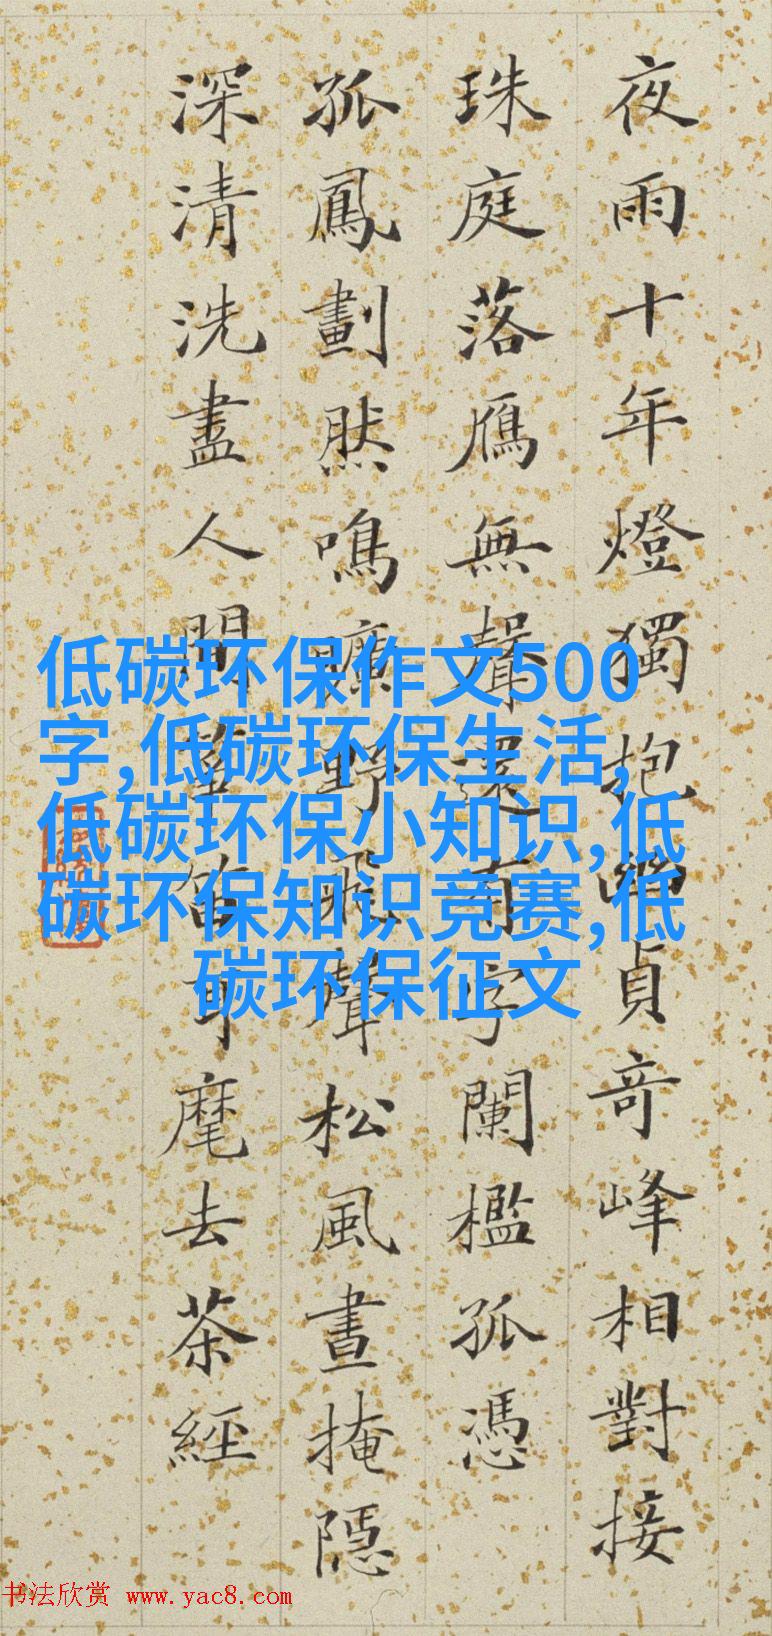 夜雨十年燈獨抱幽貞竒峰相對接
珠庭落鴈無聲還有字闌檻孤憑
孤鳳劃然鳴曠野飛聲松風晝掩隱
深清洗盡人間箏笛耳麾去茶經
低碳环保作文500
字,低碳环保生活,
低碳环保小知识,低
碳环保知识竞赛,低
碳环保征文
书法欣赏 www.yac8.com